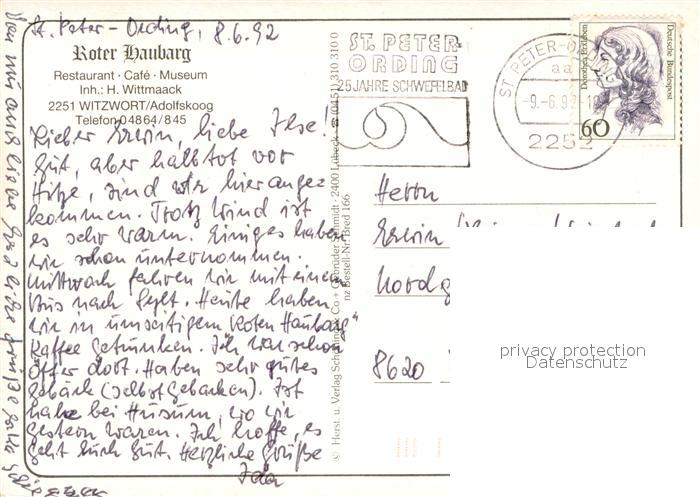 St. Peter-Ording, 8.6.92
Roter Haubarg
Restaurant · Café · Museum
Inh.: H. Wittmaack
2251 WITZWORT/Adolfskoog
Telefon 04864/845
Lieber Erwin, liebe Ilse.
Gut, aber halbtot vor
Hitze, sind wir hier ange=
kommen. Trotz Wind ist
es sehr warm. Einiges haben
wir schon unternommen.
Mittwoch fahren wir mit einem
Bus nach Sylt. Heute haben
wir im umseitigem "Roten Haubarg"
Kaffee getrunken. Ich war schon
öfter dort. Haben sehr gutes
Gebäck (selbst gebacken). Ist
nahe bei Husum, wo wir
gestern waren. Ich hoffe, es
geht Euch gut. Herzliche Grüße
Ida
Von mir auch liebe
© Herst. u. Verlag Schöning & Co + Gebrüder Schmidt · 2400 Lübeck ☎ (0451) 310 310 0
nz Bestell-Nr. Bred 166
ST. PETER-
ORDING
25 JAHRE SCHWEFELBAD
ST PETER-O
aa
-9.-6.92-
2252
Dorothea Erxleben
Deutsche Bundespost
60
Herrn
Erwin
Nordg
8620
privacy protection
Datenschutz